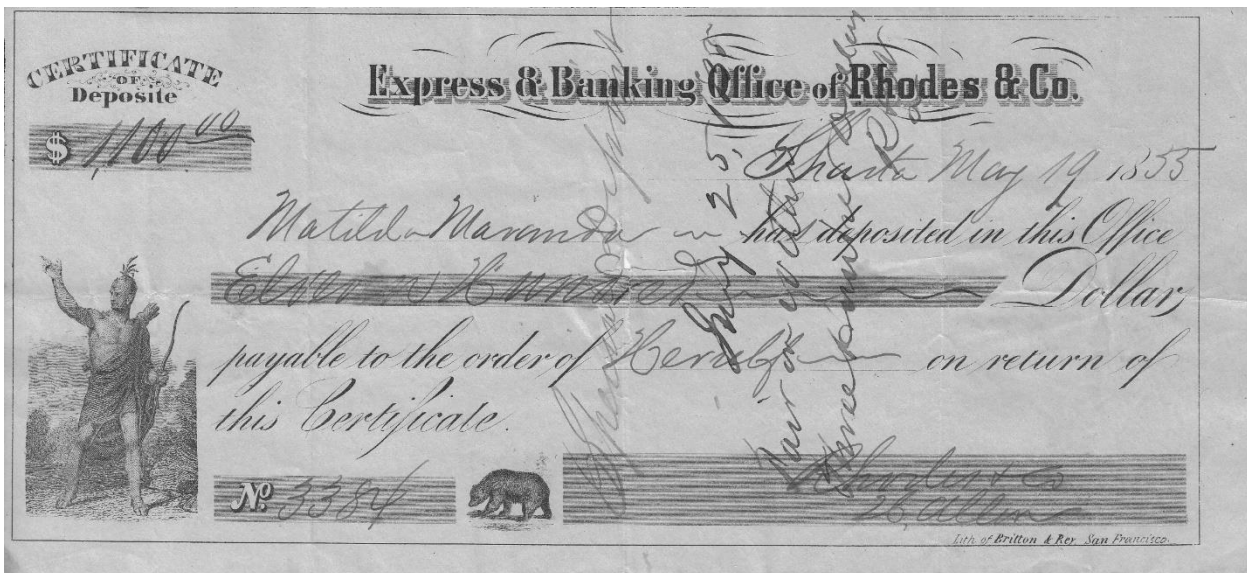 CERTIFICATE
OF
Deposite
Express & Banking Office of Rhodes & Co.
$ 1,100 00
Shasta May 19 1855
Matilda Maranda has deposited in this Office
Eleven Hundred Dollars
payable to the order of Herself on return of
this Certificate.
No. 3384
Rhodes & Co
Lith. of Britton & Rey San Francisco.
May 25, 1855